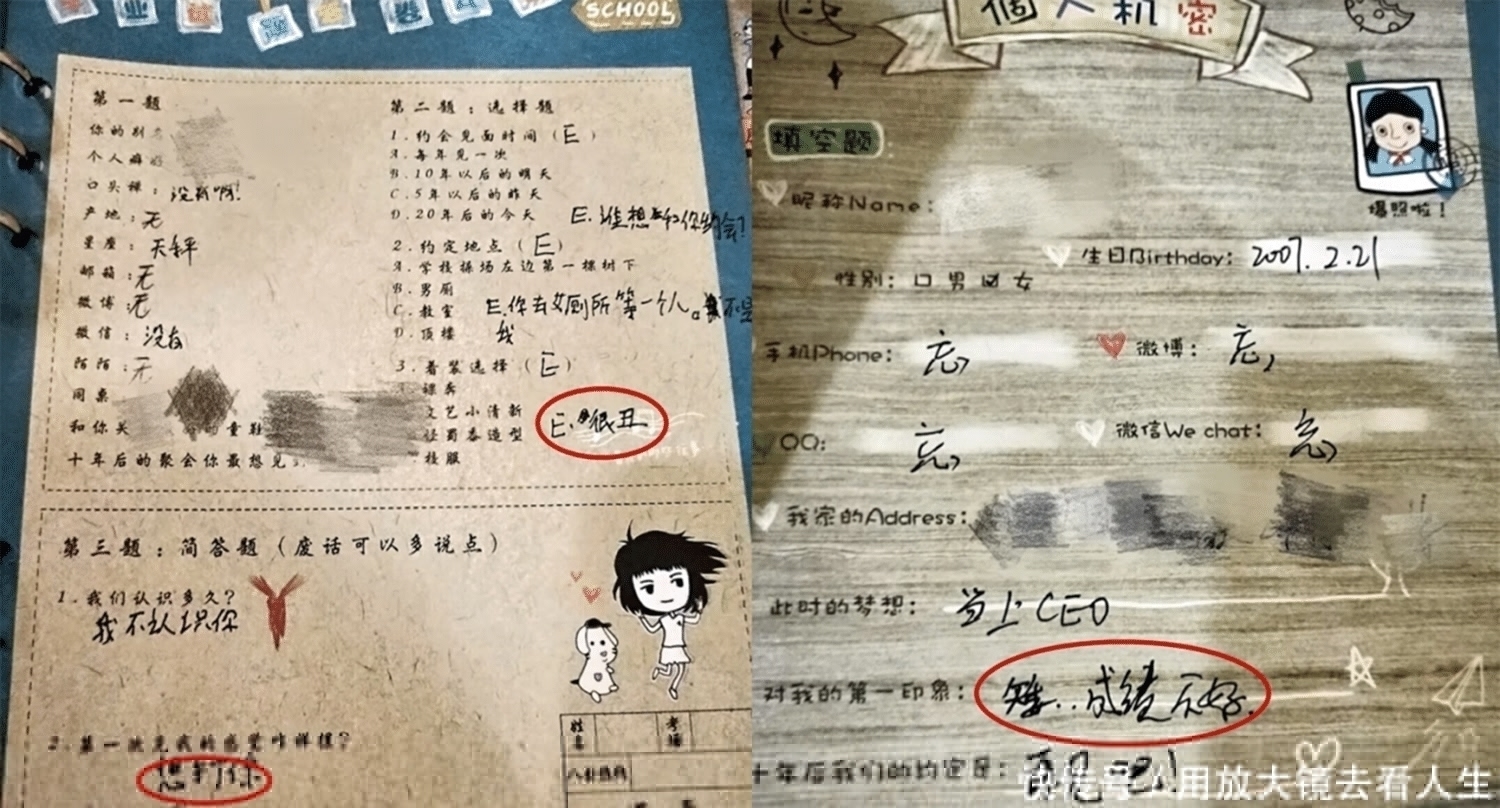 业
SCHOOL
第一题
你的别
个人癖
口头禅：没钱啊!
产地：无
星座：天秤
邮箱：无
微博：无
微信：没有
陌陌：无
同桌
和你关
童鞋
十年后的聚会你最想见
第二题：选择题
1.约会见面时间（E）
A.每年见一次
B.10年以后的明天
C.5年以后的昨天
D.20年后的今天
E.谁想和你约会!
2.约定地点（E）
A.学校操场左边第一棵树下
B.男厕
C.教室
E.你去女厕所等一个人。
D.顶楼
我
3.着装选择（E）
裸奔
文艺小清新
E.很丑
造型
校服
第三题：简答题（废话可以多说点）
1.我们认识多久?
我不认识你
2.第一次见我的感觉咋样捏?
想打你
姓名
考场
个人机密
填空题
爆照啦!
昵称Name:
生日Birthday: 2007.2.21
性别：口男☑女
手机Phone: 忘,
微博: 忘,
QQ: 忘,
微信We chat: 忘,
我家的Address:
此时的梦想: 当上CEO
对我的第一印象: 矮..成绩不好.
十年后我们的约定是:
快传号/用放大镜去看人生